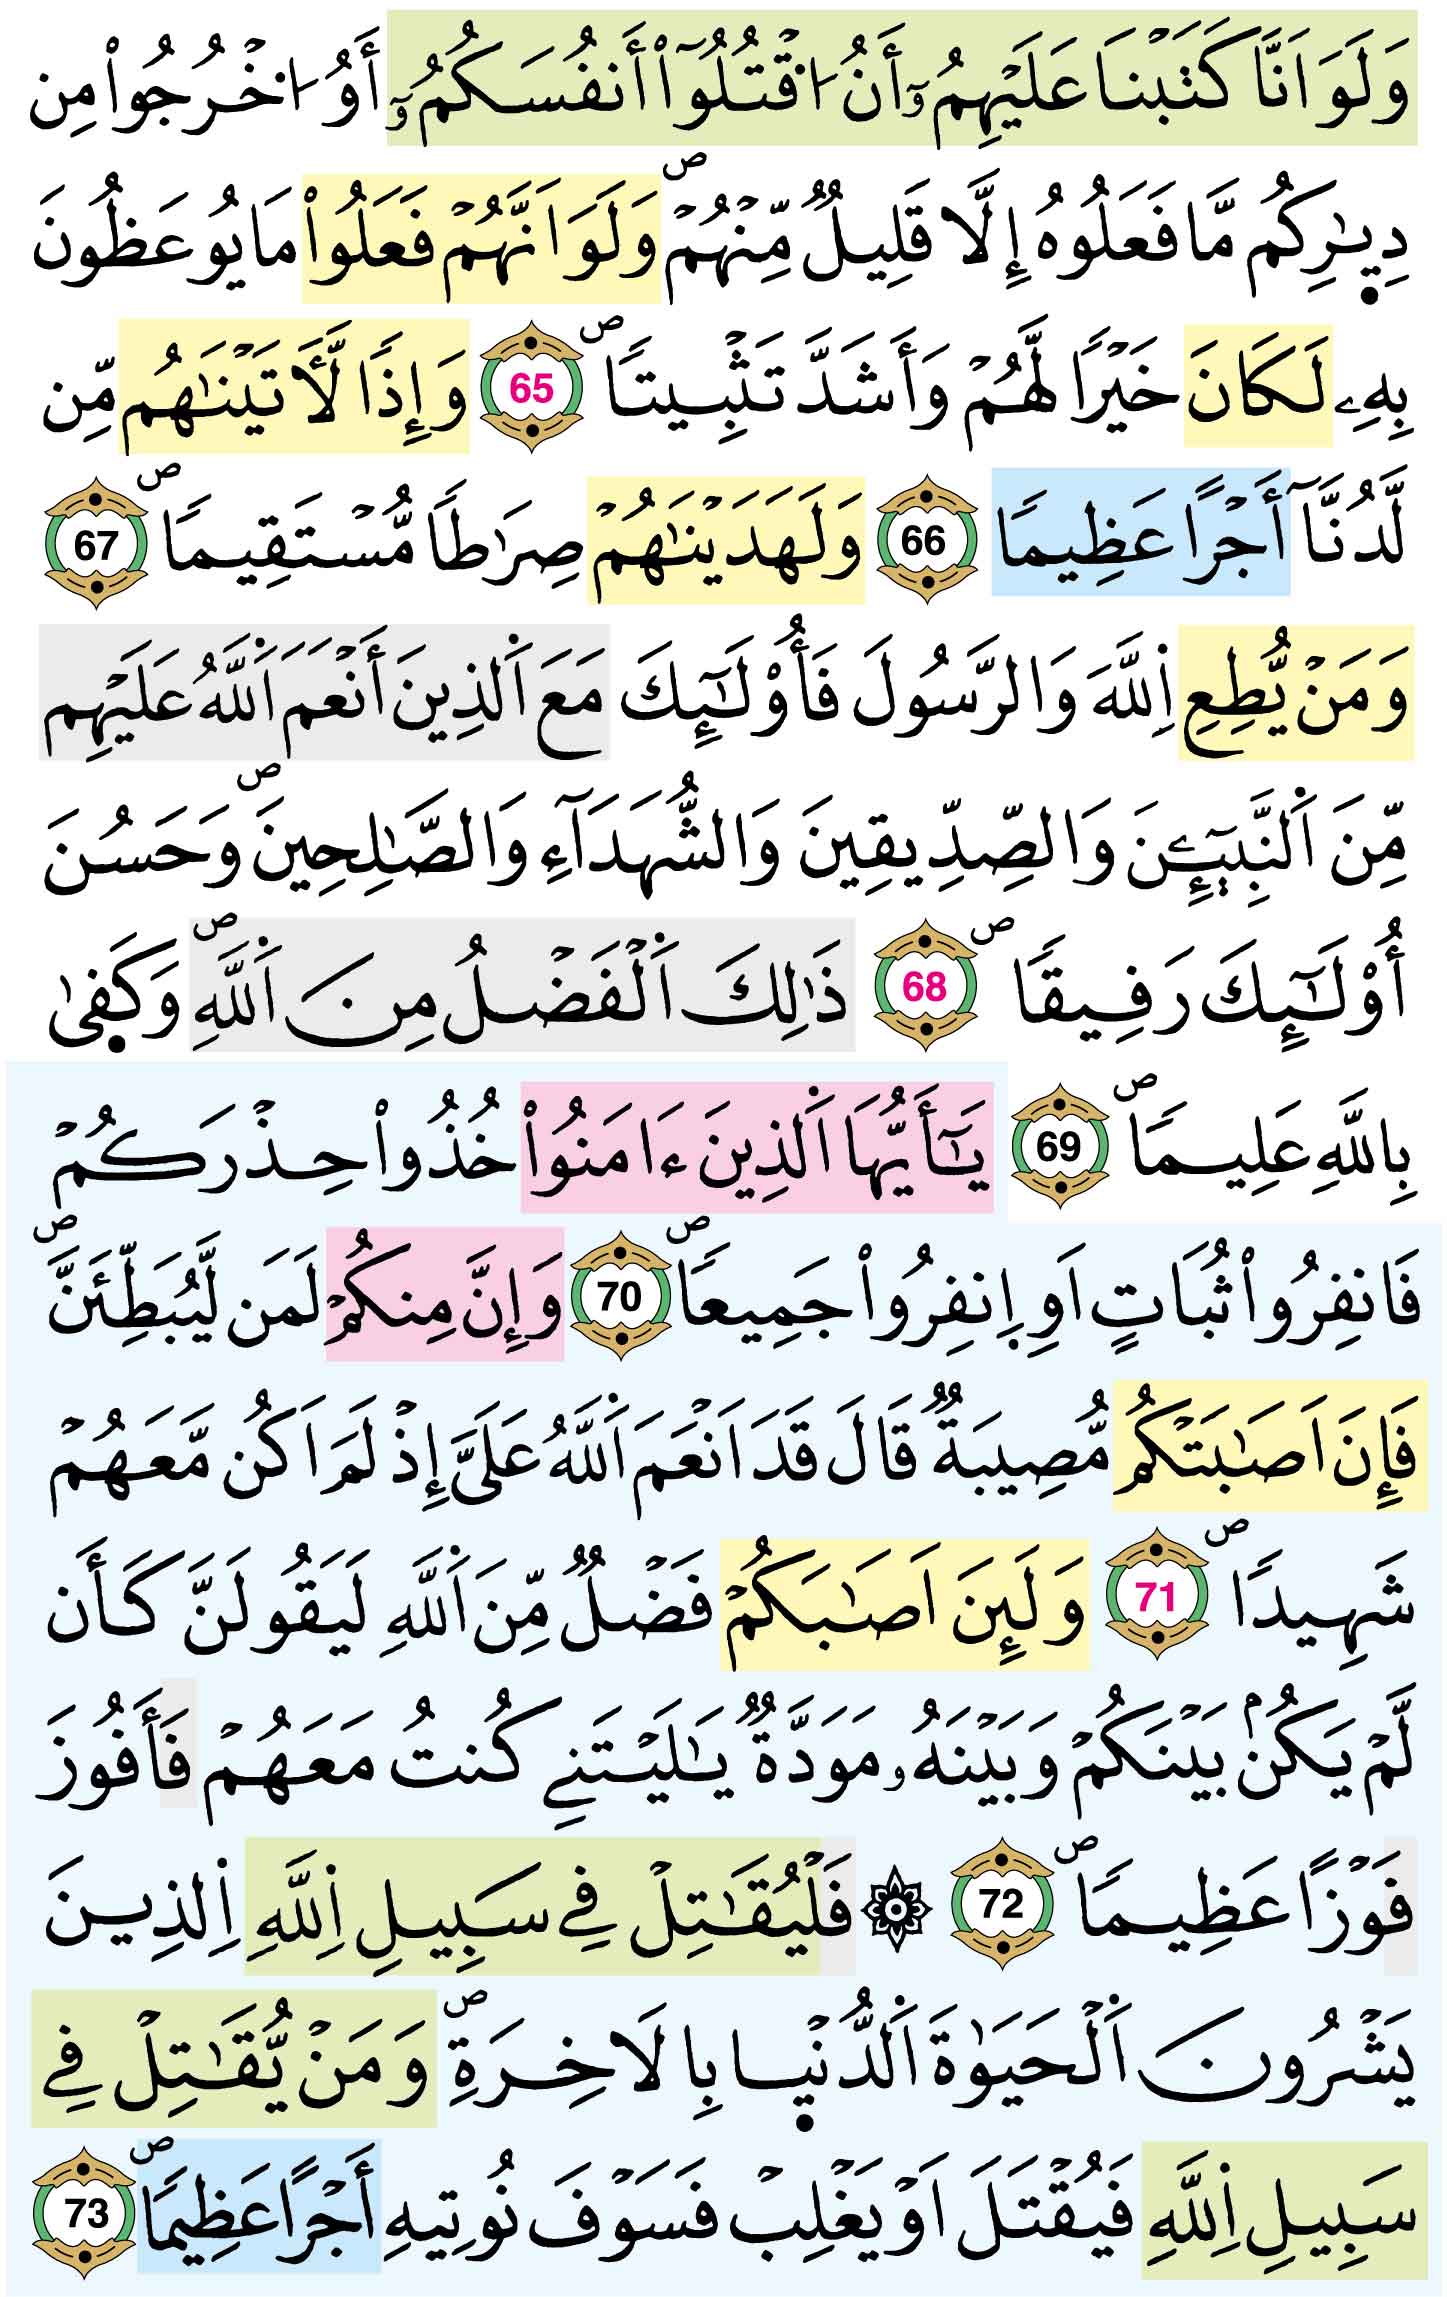 وَلَوَ اَنَّا كَتَبْنَا عَلَيْهِمُۥٓ أَنُ اُ۟قْتُلُوٓاْ أَنفُسَكُمُۥٓ أَوُ اُ۟خْرُجُواْ مِن
دِيٰ۪رِكُم مَّا فَعَلُوهُ إِلَّا قَلِيلٞ مِّنْهُمْۖ وَلَوَ اَنَّهُمْ فَعَلُواْ مَا يُوعَظُونَ
بِهِۦ لَكَانَ خَيْراٗ لَّهُمْ وَأَشَدَّ تَثْبِيتاٗۖ 65 وَإِذاٗ لَّأٓتَيْنَٰهُم مِّن
لَّدُنَّآ أَجْراً عَظِيماٗ 66 وَلَهَدَيْنَٰهُمْ صِرَٰطاٗ مُّسْتَقِيماٗۖ 67
وَمَنْ يُّطِعِ اِ۬للَّهَ وَالرَّسُولَ فَأُوْلَٰٓئِكَ مَعَ اَ۬لذِينَ أَنْعَمَ اَ۬للَّهُ عَلَيْهِم
مِّنَ اَ۬لنَّبِيٓـِٕۧنَ وَالصِّدِّيقِينَ وَالشُّهَدَآءِ وَالصَّٰلِحِينَۖ وَحَسُنَ
أُوْلَٰٓئِكَ رَفِيقاٗۖ 68 ذَٰلِكَ اَ۬لْفَضْلُ مِنَ اَ۬للَّهِۖ وَكَف۪ىٰ
بِاللَّهِ عَلِيماٗۖ 69 يَٰٓأَيُّهَا اَ۬لذِينَ ءَامَنُواْ خُذُواْ حِذْرَكُمْ
فَانفِرُواْ ثُبَاتٍ اَوِ اِ۪نفِرُواْ جَمِيعاٗۖ 70 وَإِنَّ مِنكُمْ لَمَن لَّيُبَطِّئَنَّۖ
فَإِنَ اَصَٰبَتْكُم مُّصِيبَةٞ قَالَ قَدَ اَنْعَمَ اَ۬للَّهُ عَلَيَّ إِذْ لَمَ اَكُن مَّعَهُمْ
شَهِيداٗۖ 71 وَلَئِنَ اَصَٰبَكُمْ فَضْلٞ مِّنَ اَ۬للَّهِ لَيَقُولَنَّ كَأَن
لَّمْ يَكُنۢ بَيْنَكُمْ وَبَيْنَهُۥ مَوَدَّةٞ يَٰلَيْتَنِے كُنتُ مَعَهُمْ فَأَفُوزَ
فَوْزاً عَظِيماٗۖ 72 ۞ فَلْيُقَٰتِلْ فِے سَبِيلِ اِ۬للَّهِ اِ۬لذِينَ
يَشْرُونَ اَ۬لْحَيَوٰةَ اَ۬لدُّنْي۪ا بِالَاخِرَةِۖ وَمَنْ يُّقَٰتِلْ فِے
سَبِيلِ اِ۬للَّهِ فَيُقْتَلَ اَوْ يَغْلِبْ فَسَوْفَ نُوتِيهِ أَجْراً عَظِيماٗۖ 73